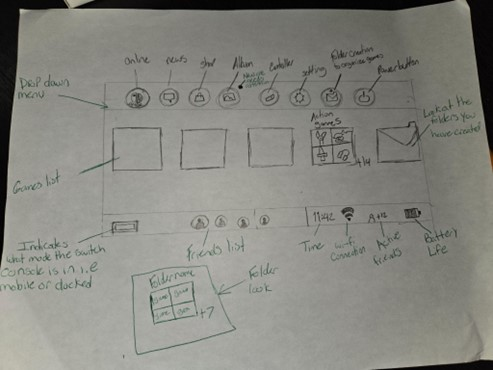 online
news
shop
Album
Controller
setting
Folder creation
to organise games
Power button
Drop down
menu
Action
games
+14
Look at the
folders you
have created
Games list
Indicates
what mode the switch
Console is in i.e
mobile or docked
Friends list
11:42
Time
wifi
connection
Active
friends
Battery
Life
Folder name
+7
Folder
look